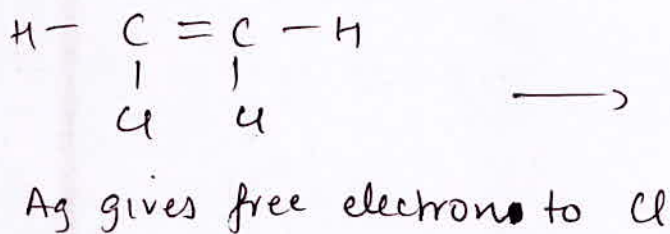 H - C = C - H
| |
Cl Cl
⟶
Ag gives free electrons to Cl